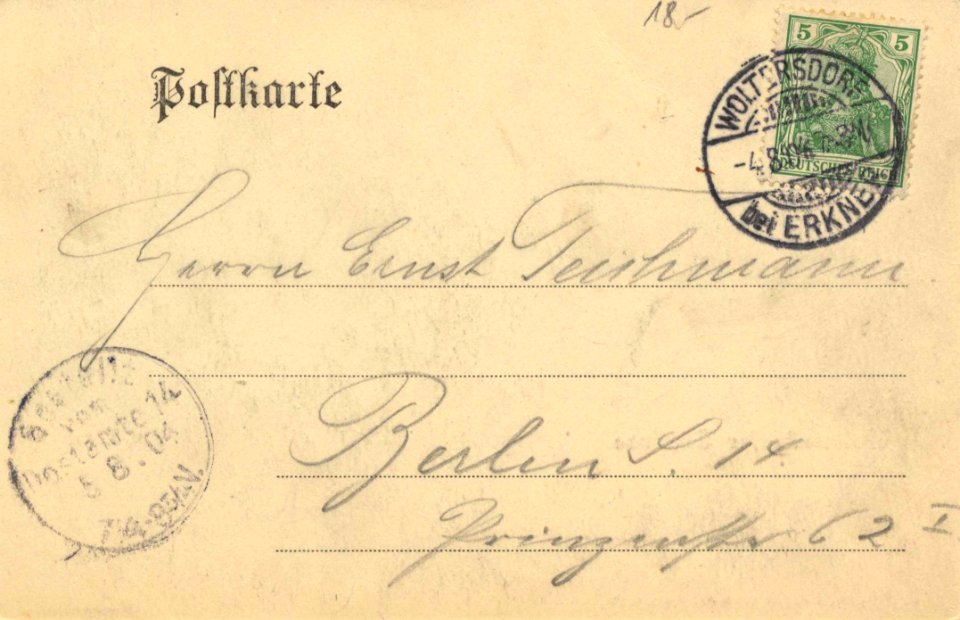 18.-
5 5
Postkarte
WOLTERSDORF
-4.8.04
DEUTSCHES REICH
bei ERKNE
Herrn Ernst Teichmann
Bestellt
vom
Postamte 14
5.8.04
Berlin S. 14.
Prinzenstr 62 I